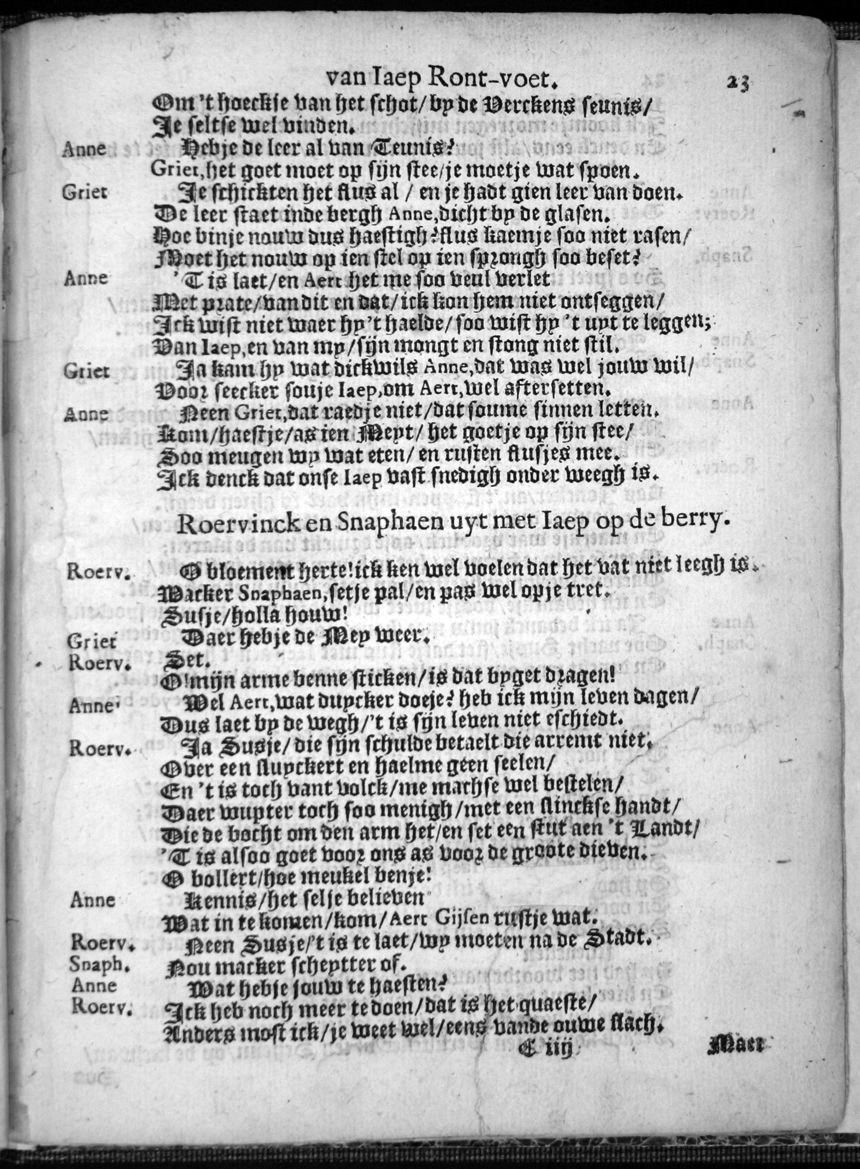 van Iaep Ront-voet. 23
Om 't hoeckje van het schot/ by de Verckens seunis/
Je seltse wel vinden.
Anne Hebje de leer al van Teunis?
Griet, het goet moet op sijn stee/ je moetje wat spoen.
Griet Je schickten het flus al / en je hadt gien leer van doen.
De leer staet inde bergh Anne, dicht by de glasen.
Hoe binje nouw dus haestigh? flus kaemje soo niet rasen/
Moet het nouw op ien stel op ien sprongh soo beset?
Anne 'T is laet/ en Aert het me soo veul verlet
Met prate/ van dit en dat/ ick kon hem niet ontseggen/
Ick wist niet waer hy't haelde/ soo wist hy 't uyt te leggen;
Van Iaep, en van my/ sijn mongt en stong niet stil.
Griet Ja kam hy wat dickwils Anne, dat was wel jouw wil/
Voor seecker souje Iaep, om Aert, wel aftersetten.
Anne Neen Griet, dat raedje niet/ dat soume sinnen letten.
Kom/ haestje/ as ien Meyt/ het goetje op sijn stee/
Soo meugen wy wat eten/ en rusten flusjes mee.
Ick denck dat onse Iaep vast snedigh onder weegh is.
Roervinck en Snaphaen uyt met Iaep op de berry.
Roerv. O bloement herte! ick ken wel voelen dat het vat niet leegh is.
Macker Snaphaen, setje pal/ en pas wel op je tret.
Susje/ holla houw!
Griet Daer hebje de Mey weer.
Roerv. Set.
O! mijn arme benne sticken/ is dat byget dragen!
Anne Wel Aert, wat duycker doeje? heb ick mijn leven dagen/
Dus laet by de wegh/ 't is sijn leven niet eschiedt.
Roerv. Ja Susje/ die sijn schulde betaelt die arremt niet.
Over een fluyckert en haelme geen seelen/
En 't is toch vant volck/ me machse wel bestelen/
Daer wupter toch soo menigh/ met een flinckse handt/
Die de bocht om den arm het/ en set een stut aen 't Landt/
'T is alsoo goet voor ons as voor de groote dieven.
O bollert/ hoe meukel benje!
Anne Kennis/ het selje believen
Wat in te komen/ kom/ Aert Gijsen rustje wat.
Roerv. Neen Susje/ 't is te laet/ wy moeten na de Stadt.
Snaph. Nou macker scheptter of.
Anne Wat hebje jouw te haesten?
Roerv. Ick heb noch meer te doen/ dat is het quaeste/
Anders most ick/ je weet wel/ eens vande ouwe flach.
C iiij Maer